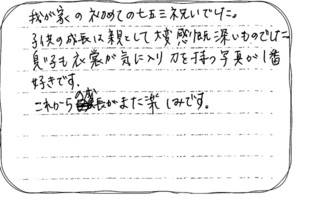 我が家の初めての七五三祝いでした。
子供の成長は親として大変感慨深いものでした
息子も衣裳が気に入り刀を持つ写真が1番
好きです。
これからの成長がまた楽しみです。